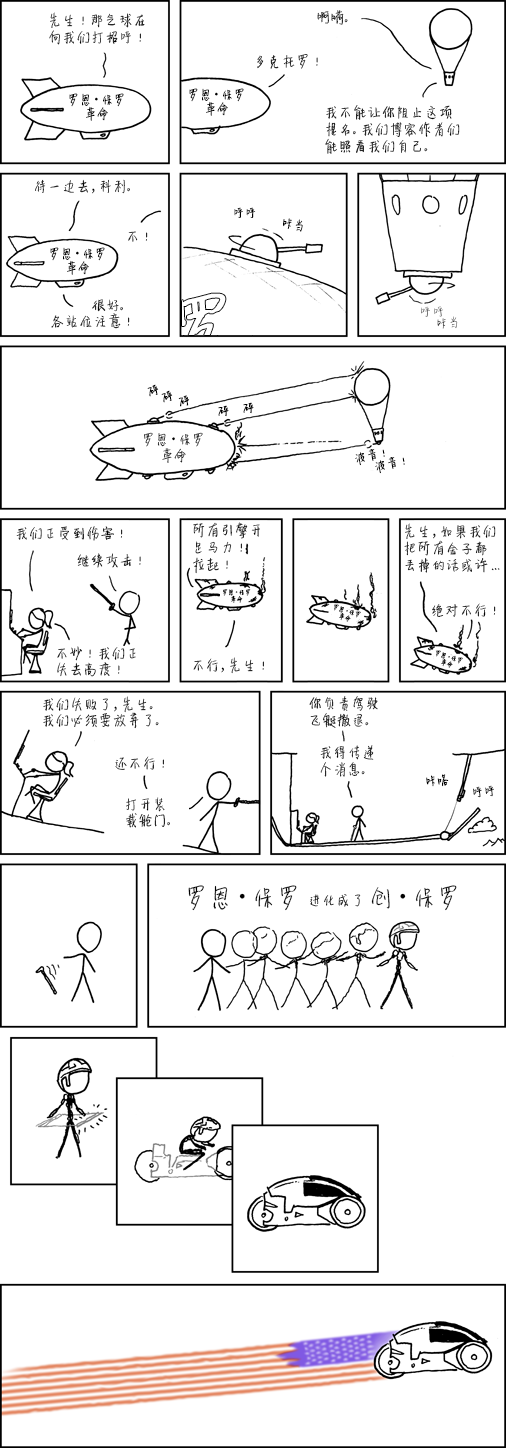 先生！那气球在
向我们打招呼！
罗恩·保罗
革命
啊嗬。
多克托罗！
罗恩·保罗
革命
我不能让你阻止这项
提名。我们博客作者们
能照看我们自己。
待一边去，科利。
不！
罗恩·保罗
革命
很好。
各站位注意！
呼呼
咔当
罗
呼呼
咔当
砰
砰
砰
砰
砰
罗恩·保罗
革命
波音！
波音！
我们正受到伤害！
继续攻击！
不妙！我们正
失去高度！
所有引擎开
足马力！
拉起！
罗恩·保罗
革命
不行，先生！
罗恩·保罗
革命
先生，如果我们
把所有金子都
丢掉的话或许…
绝对不行！
罗恩·保罗
革命
我们失败了，先生。
我们必须要放弃了。
还不行！
打开装
载舱门。
你负责驾驶
飞艇撤退。
我得传递
个消息。
咔嗒
呼呼
罗恩·保罗 进化成了 创·保罗